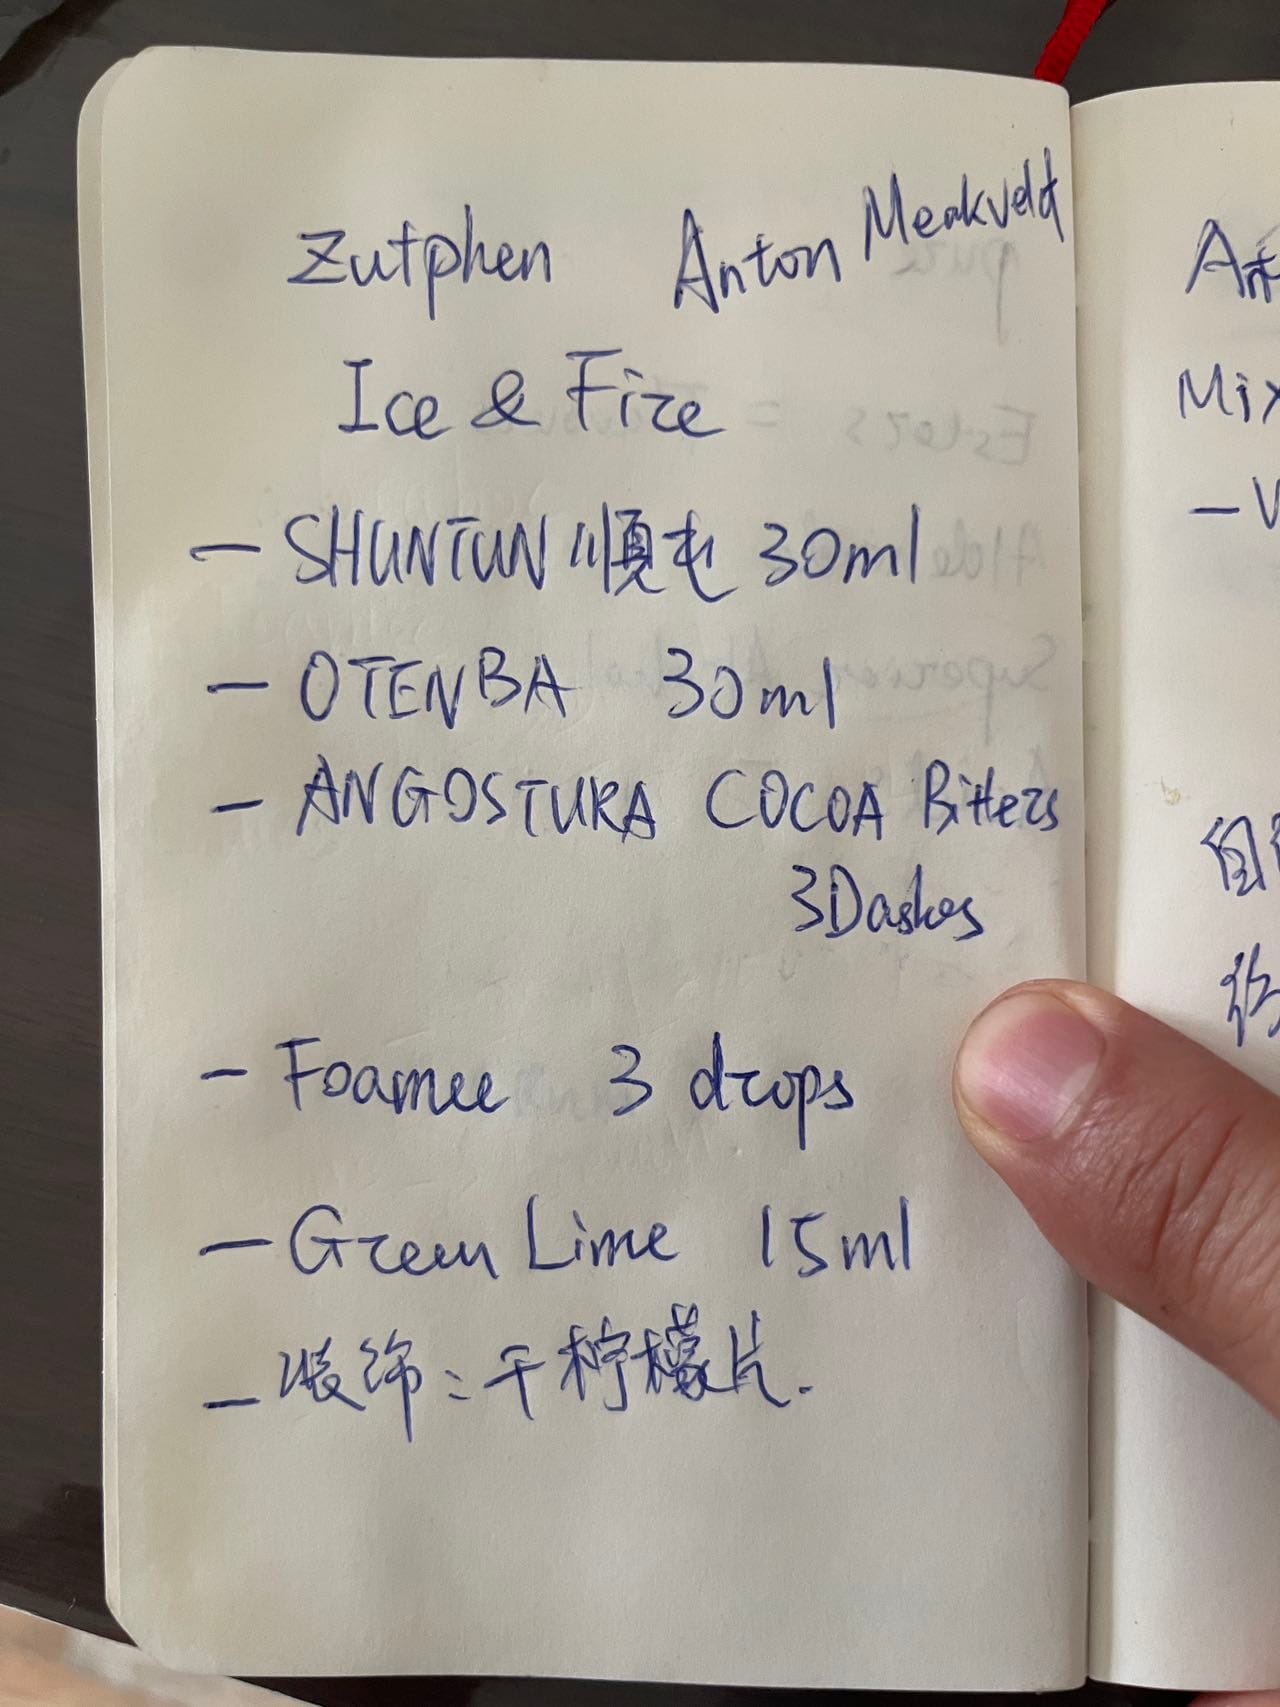 Zutphen Anton Meakveld
Ice & Fire
- SHUNTUN 順屯 30ml
- OTENBA 30ml
- ANGOSTURA COCOA Bitters
3Dashes
- Foamee 3 drops
- Green Lime 15ml
- 装饰:干柠檬片.
Mix